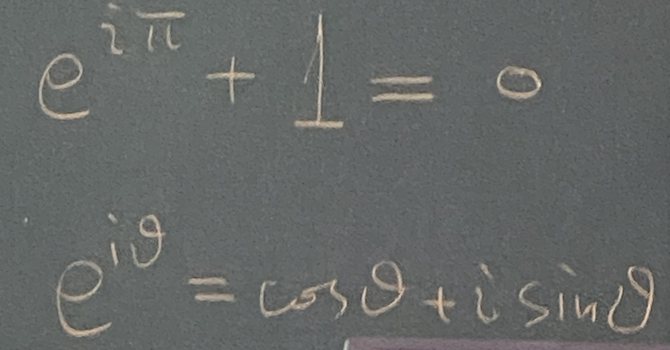 e^{iπ} + 1 = 0
e^{iϑ} = cosϑ + i sinϑ